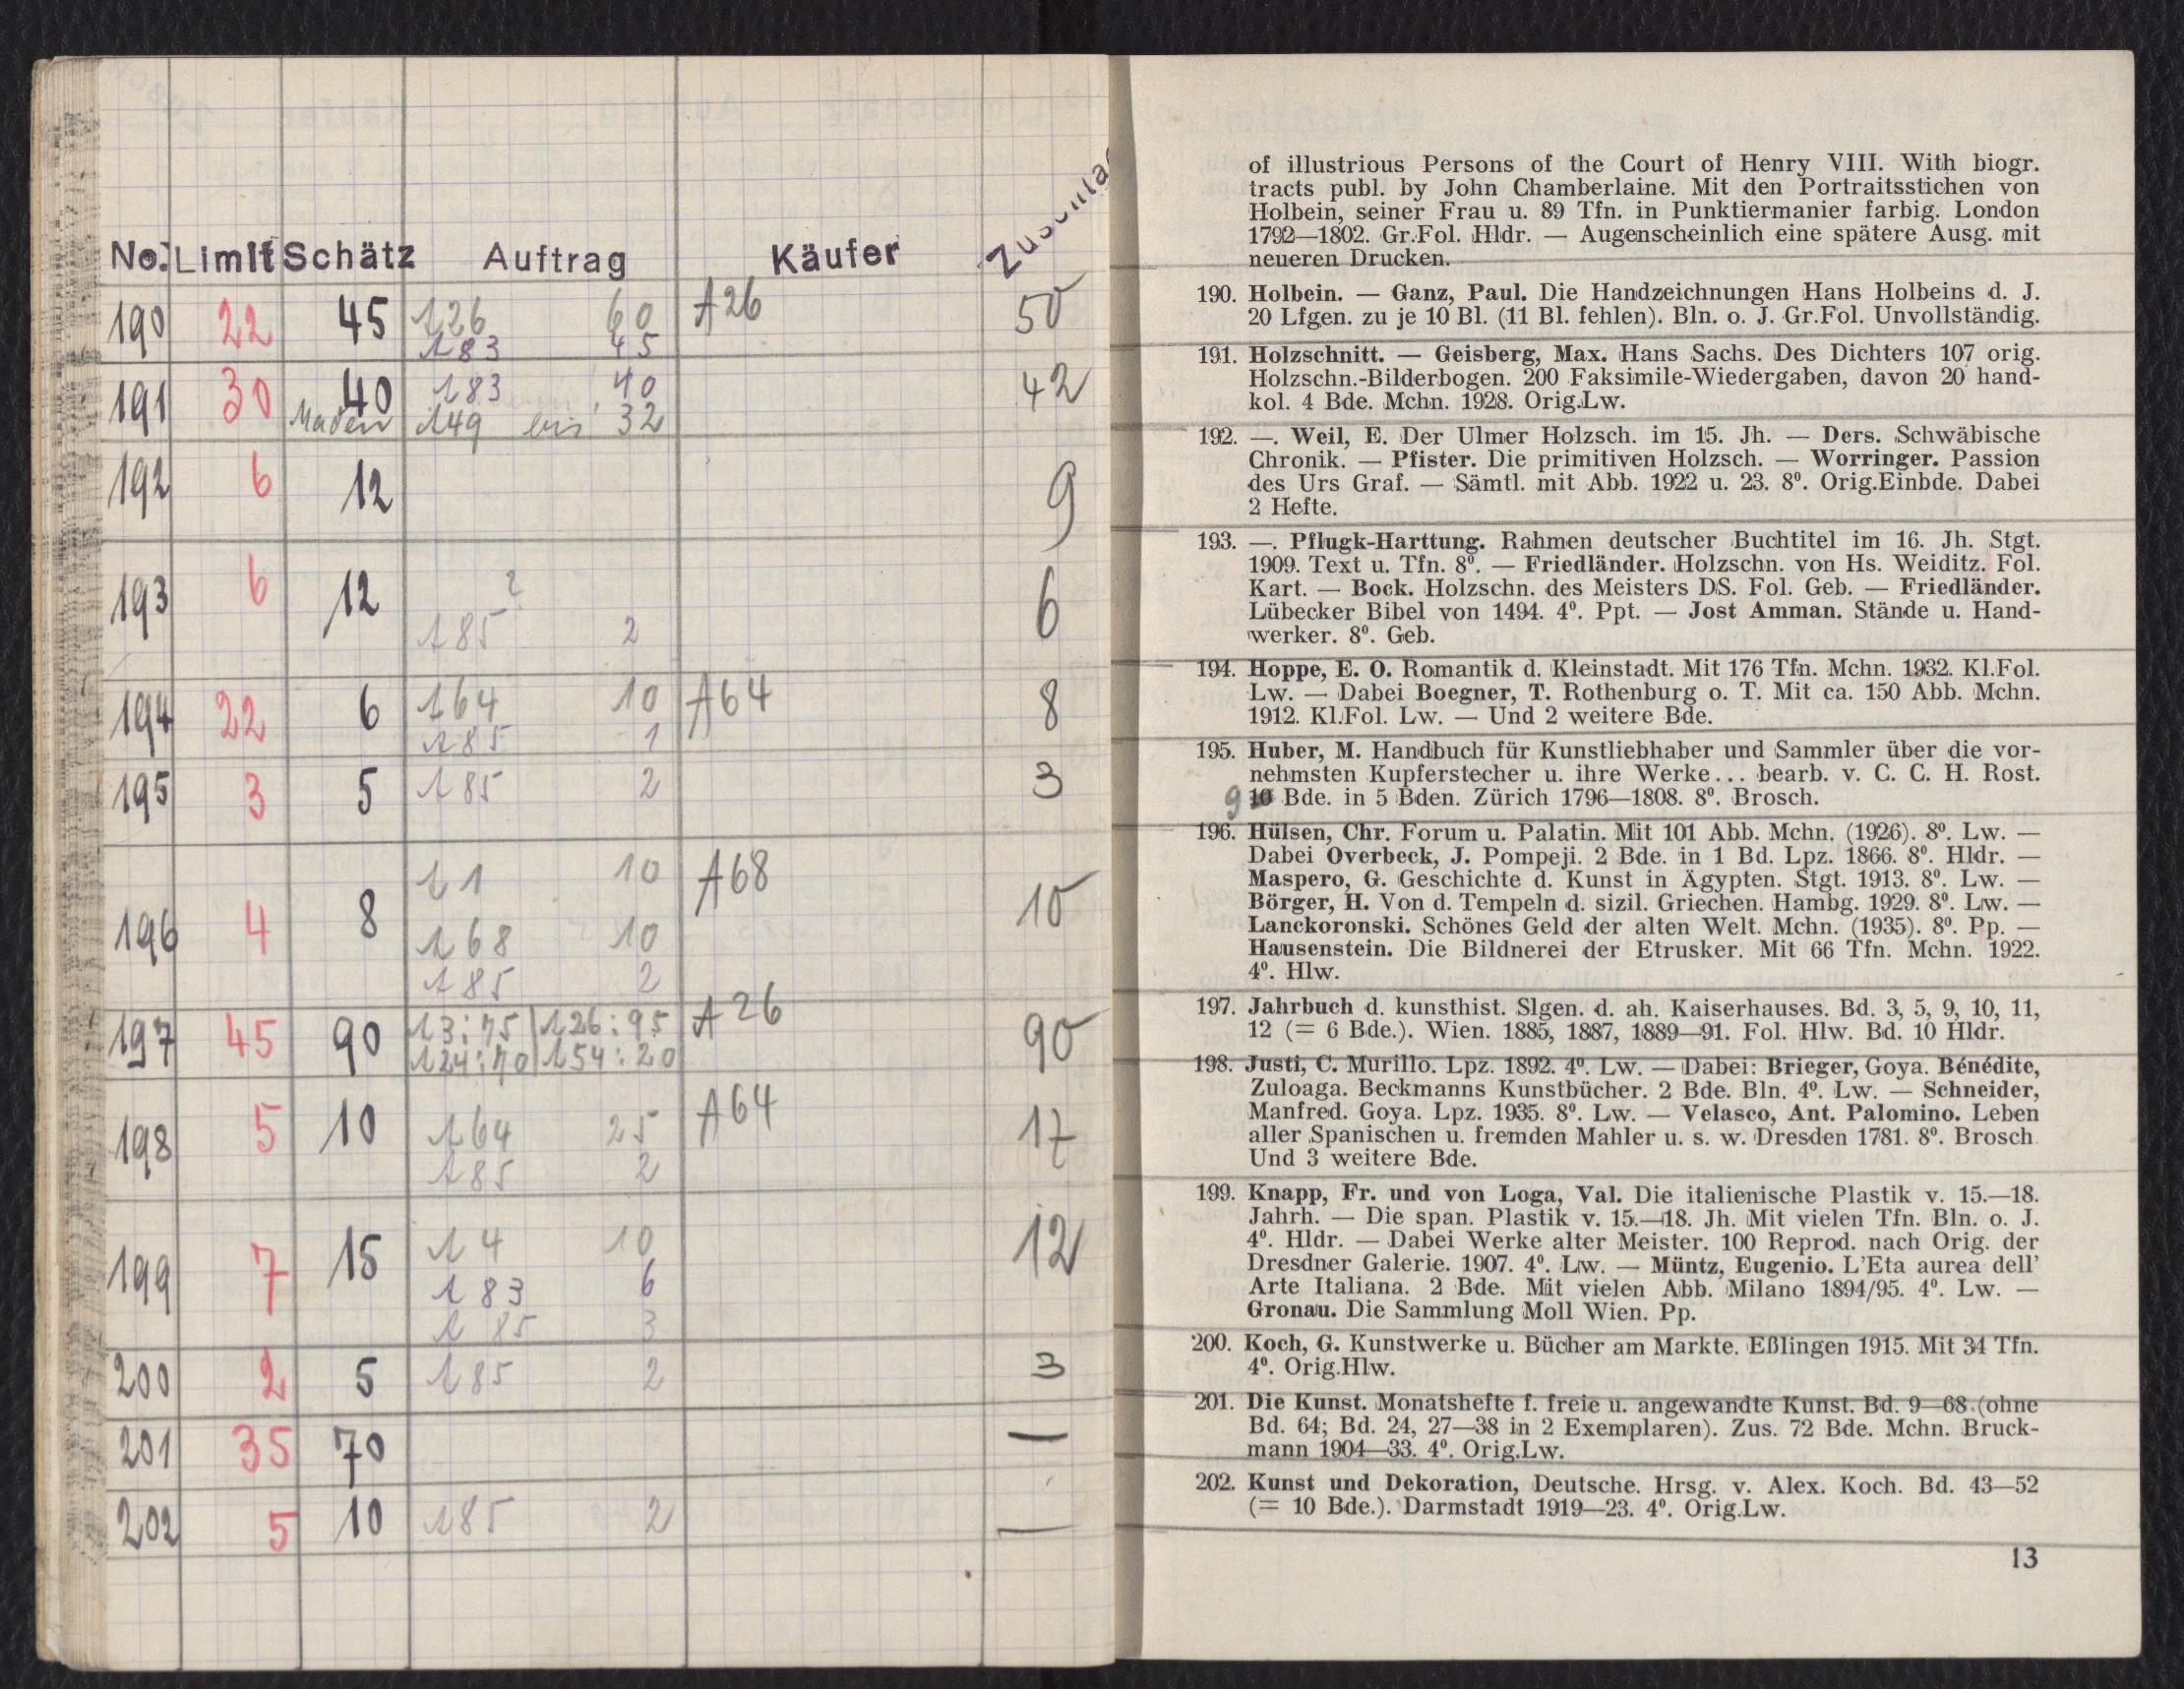 No. Limit Schätz Auftrag Käufer
190 22 45 A26 60 A26 50
A83 45
191 30 40 A83 40 42
A49 bis 32
192 6 12 9
193 6 12 ? 6
A85 2
194 22 6 A64 10 A64 8
A85 1
195 3 5 A85 2 3
A1 10 A68
196 4 8 10
A68 10
A85 2
197 45 90 A3:75 A26:95 A26 90
A24:70 A54:20
198 5 10 A64 25 A64 17
A85 2
199 7 15 A4 10 12
A83 6
A85 3
200 2 5 A85 2 3
201 35 70 —
202 5 10 A85 2 —
of illustrious Persons of the Court of Henry VIII. With biogr.
tracts publ. by John Chamberlaine. Mit den Portraitsstichen von
Holbein, seiner Frau u. 89 Tfn. in Punktiermanier farbig. London
1792—1802. Gr.Fol. Hldr. — Augenscheinlich eine spätere Ausg. mit
neueren Drucken.
190. Holbein. — Ganz, Paul. Die Handzeichnungen Hans Holbeins d. J.
20 Lfgen. zu je 10 Bl. (11 Bl. fehlen). Bln. o. J. Gr.Fol. Unvollständig.
191. Holzschnitt. — Geisberg, Max. Hans Sachs. Des Dichters 107 orig.
Holzschn.-Bilderbogen. 200 Faksimile-Wiedergaben, davon 20 hand-
kol. 4 Bde. Mchn. 1928. Orig.Lw.
192. —. Weil, E. Der Ulmer Holzsch. im 15. Jh. — Ders. Schwäbische
Chronik. — Pfister. Die primitiven Holzsch. — Worringer. Passion
des Urs Graf. — Sämtl. mit Abb. 1922 u. 23. 8⁰. Orig.Einbde. Dabei
2 Hefte.
193. —. Pflugk-Harttung. Rahmen deutscher Buchtitel im 16. Jh. Stgt.
1909. Text u. Tfn. 8⁰. — Friedländer. Holzschn. von Hs. Weiditz. Fol.
Kart. — Bock. Holzschn. des Meisters DS. Fol. Geb. — Friedländer.
Lübecker Bibel von 1494. 4⁰. Ppt. — Jost Amman. Stände u. Hand-
werker. 8⁰. Geb.
194. Hoppe, E. O. Romantik d. Kleinstadt. Mit 176 Tfn. Mchn. 1932. Kl.Fol.
Lw. — Dabei Boegner, T. Rothenburg o. T. Mit ca. 150 Abb. Mchn.
1912. Kl.Fol. Lw. — Und 2 weitere Bde.
195. Huber, M. Handbuch für Kunstliebhaber und Sammler über die vor-
nehmsten Kupferstecher u. ihre Werke... bearb. v. C. C. H. Rost.
9 10 Bde. in 5 Bden. Zürich 1796—1808. 8⁰. Brosch.
196. Hülsen, Chr. Forum u. Palatin. Mit 101 Abb. Mchn. (1926). 8⁰. Lw. —
Dabei Overbeck, J. Pompeji. 2 Bde. in 1 Bd. Lpz. 1866. 8⁰. Hldr. —
Maspero, G. Geschichte d. Kunst in Ägypten. Stgt. 1913. 8⁰. Lw. —
Börger, H. Von d. Tempeln d. sizil. Griechen. Hambg. 1929. 8⁰. Lw. —
Lanckoronski. Schönes Geld der alten Welt. Mchn. (1935). 8⁰. Pp. —
Hausenstein. Die Bildnerei der Etrusker. Mit 66 Tfn. Mchn. 1922.
4⁰. Hlw.
197. Jahrbuch d. kunsthist. Slgen. d. ah. Kaiserhauses. Bd. 3, 5, 9, 10, 11,
12 (= 6 Bde.). Wien. 1885, 1887, 1889—91. Fol. Hlw. Bd. 10 Hldr.
198. Justi, C. Murillo. Lpz. 1892. 4⁰. Lw. — Dabei: Brieger, Goya. Bénédite,
Zuloaga. Beckmanns Kunstbücher. 2 Bde. Bln. 4⁰. Lw. — Schneider,
Manfred. Goya. Lpz. 1935. 8⁰. Lw. — Velasco, Ant. Palomino. Leben
aller Spanischen u. fremden Mahler u. s. w. Dresden 1781. 8⁰. Brosch.
Und 3 weitere Bde.
199. Knapp, Fr. und von Loga, Val. Die italienische Plastik v. 15.—18.
Jahrh. — Die span. Plastik v. 15.—18. Jh. Mit vielen Tfn. Bln. o. J.
4⁰. Hldr. — Dabei Werke alter Meister. 100 Reprod. nach Orig. der
Dresdner Galerie. 1907. 4⁰. Lw. — Müntz, Eugenio. L'Eta aurea dell'
Arte Italiana. 2 Bde. Mit vielen Abb. Milano 1894/95. 4⁰. Lw. —
Gronau. Die Sammlung Moll Wien. Pp.
200. Koch, G. Kunstwerke u. Bücher am Markte. Eßlingen 1915. Mit 34 Tfn.
4⁰. Orig.Hlw.
201. Die Kunst. Monatshefte f. freie u. angewandte Kunst. Bd. 9—68 (ohne
Bd. 64; Bd. 24, 27—38 in 2 Exemplaren). Zus. 72 Bde. Mchn. Bruck-
mann 1904—33. 4⁰. Orig.Lw.
202. Kunst und Dekoration, Deutsche. Hrsg. v. Alex. Koch. Bd. 43—52
(= 10 Bde.). Darmstadt 1919—23. 4⁰. Orig.Lw.
13